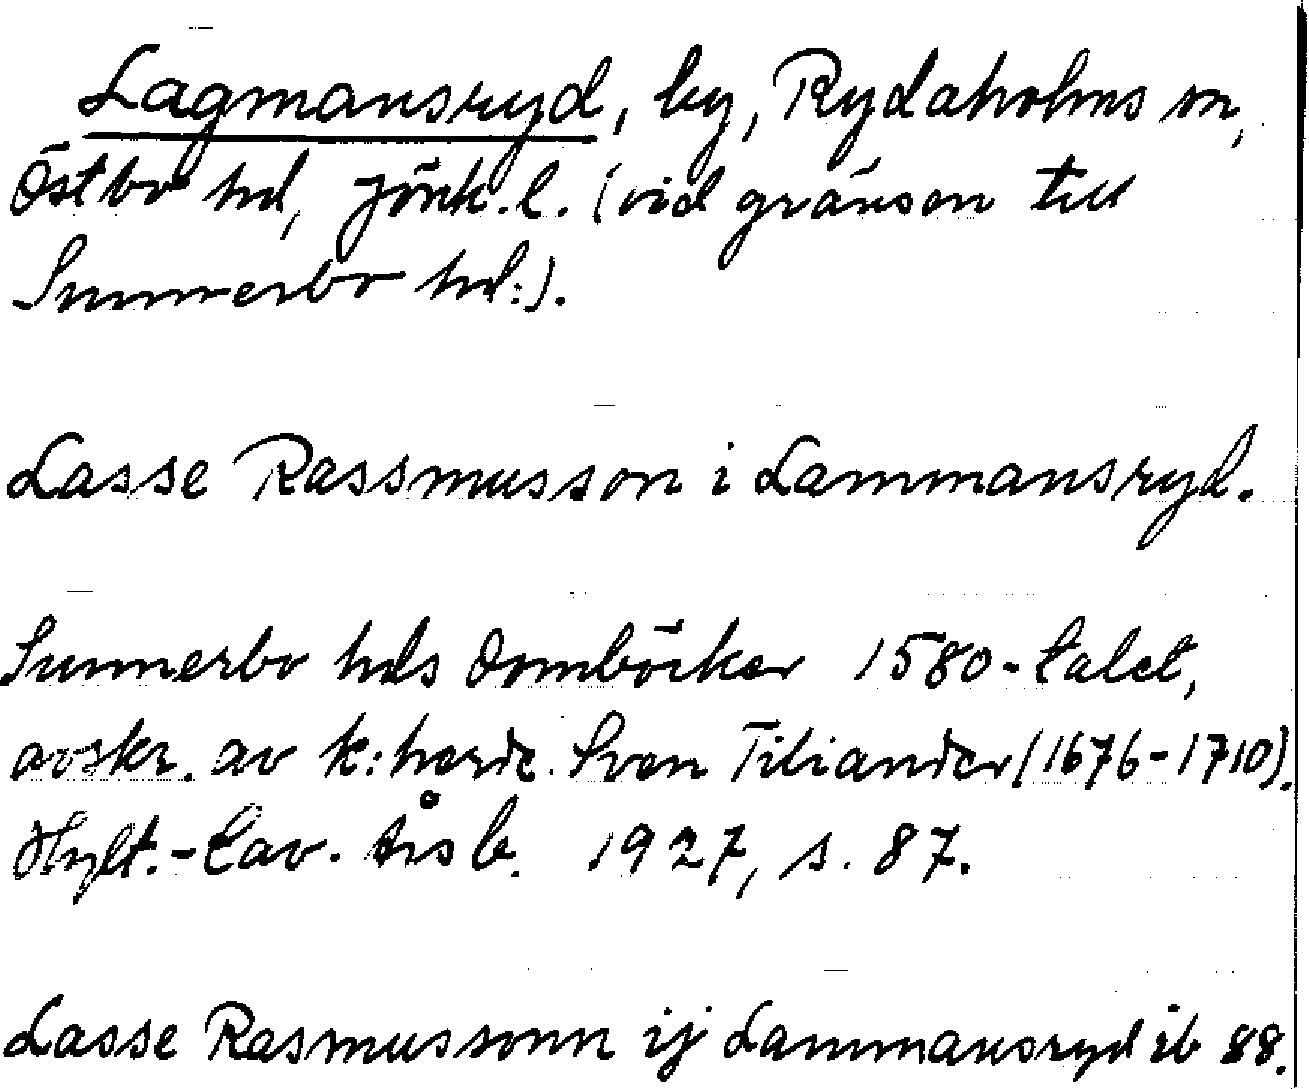 Lagmansryd, by, Rydaholms sn,
Östbo hd, Jönk. l. (vid gränsen till
Sunnerbo hd:).
Lasse Rassmusson i Lammansryd.
Sunnerbo hds domböcker 1580-talet,
avskr. av k:herde Sven Tiliander (1676-1710).
Hylt.-Cav. årsb. 1927, s. 87.
Lasse Rasmussonn ij Lammansryd ib 88.